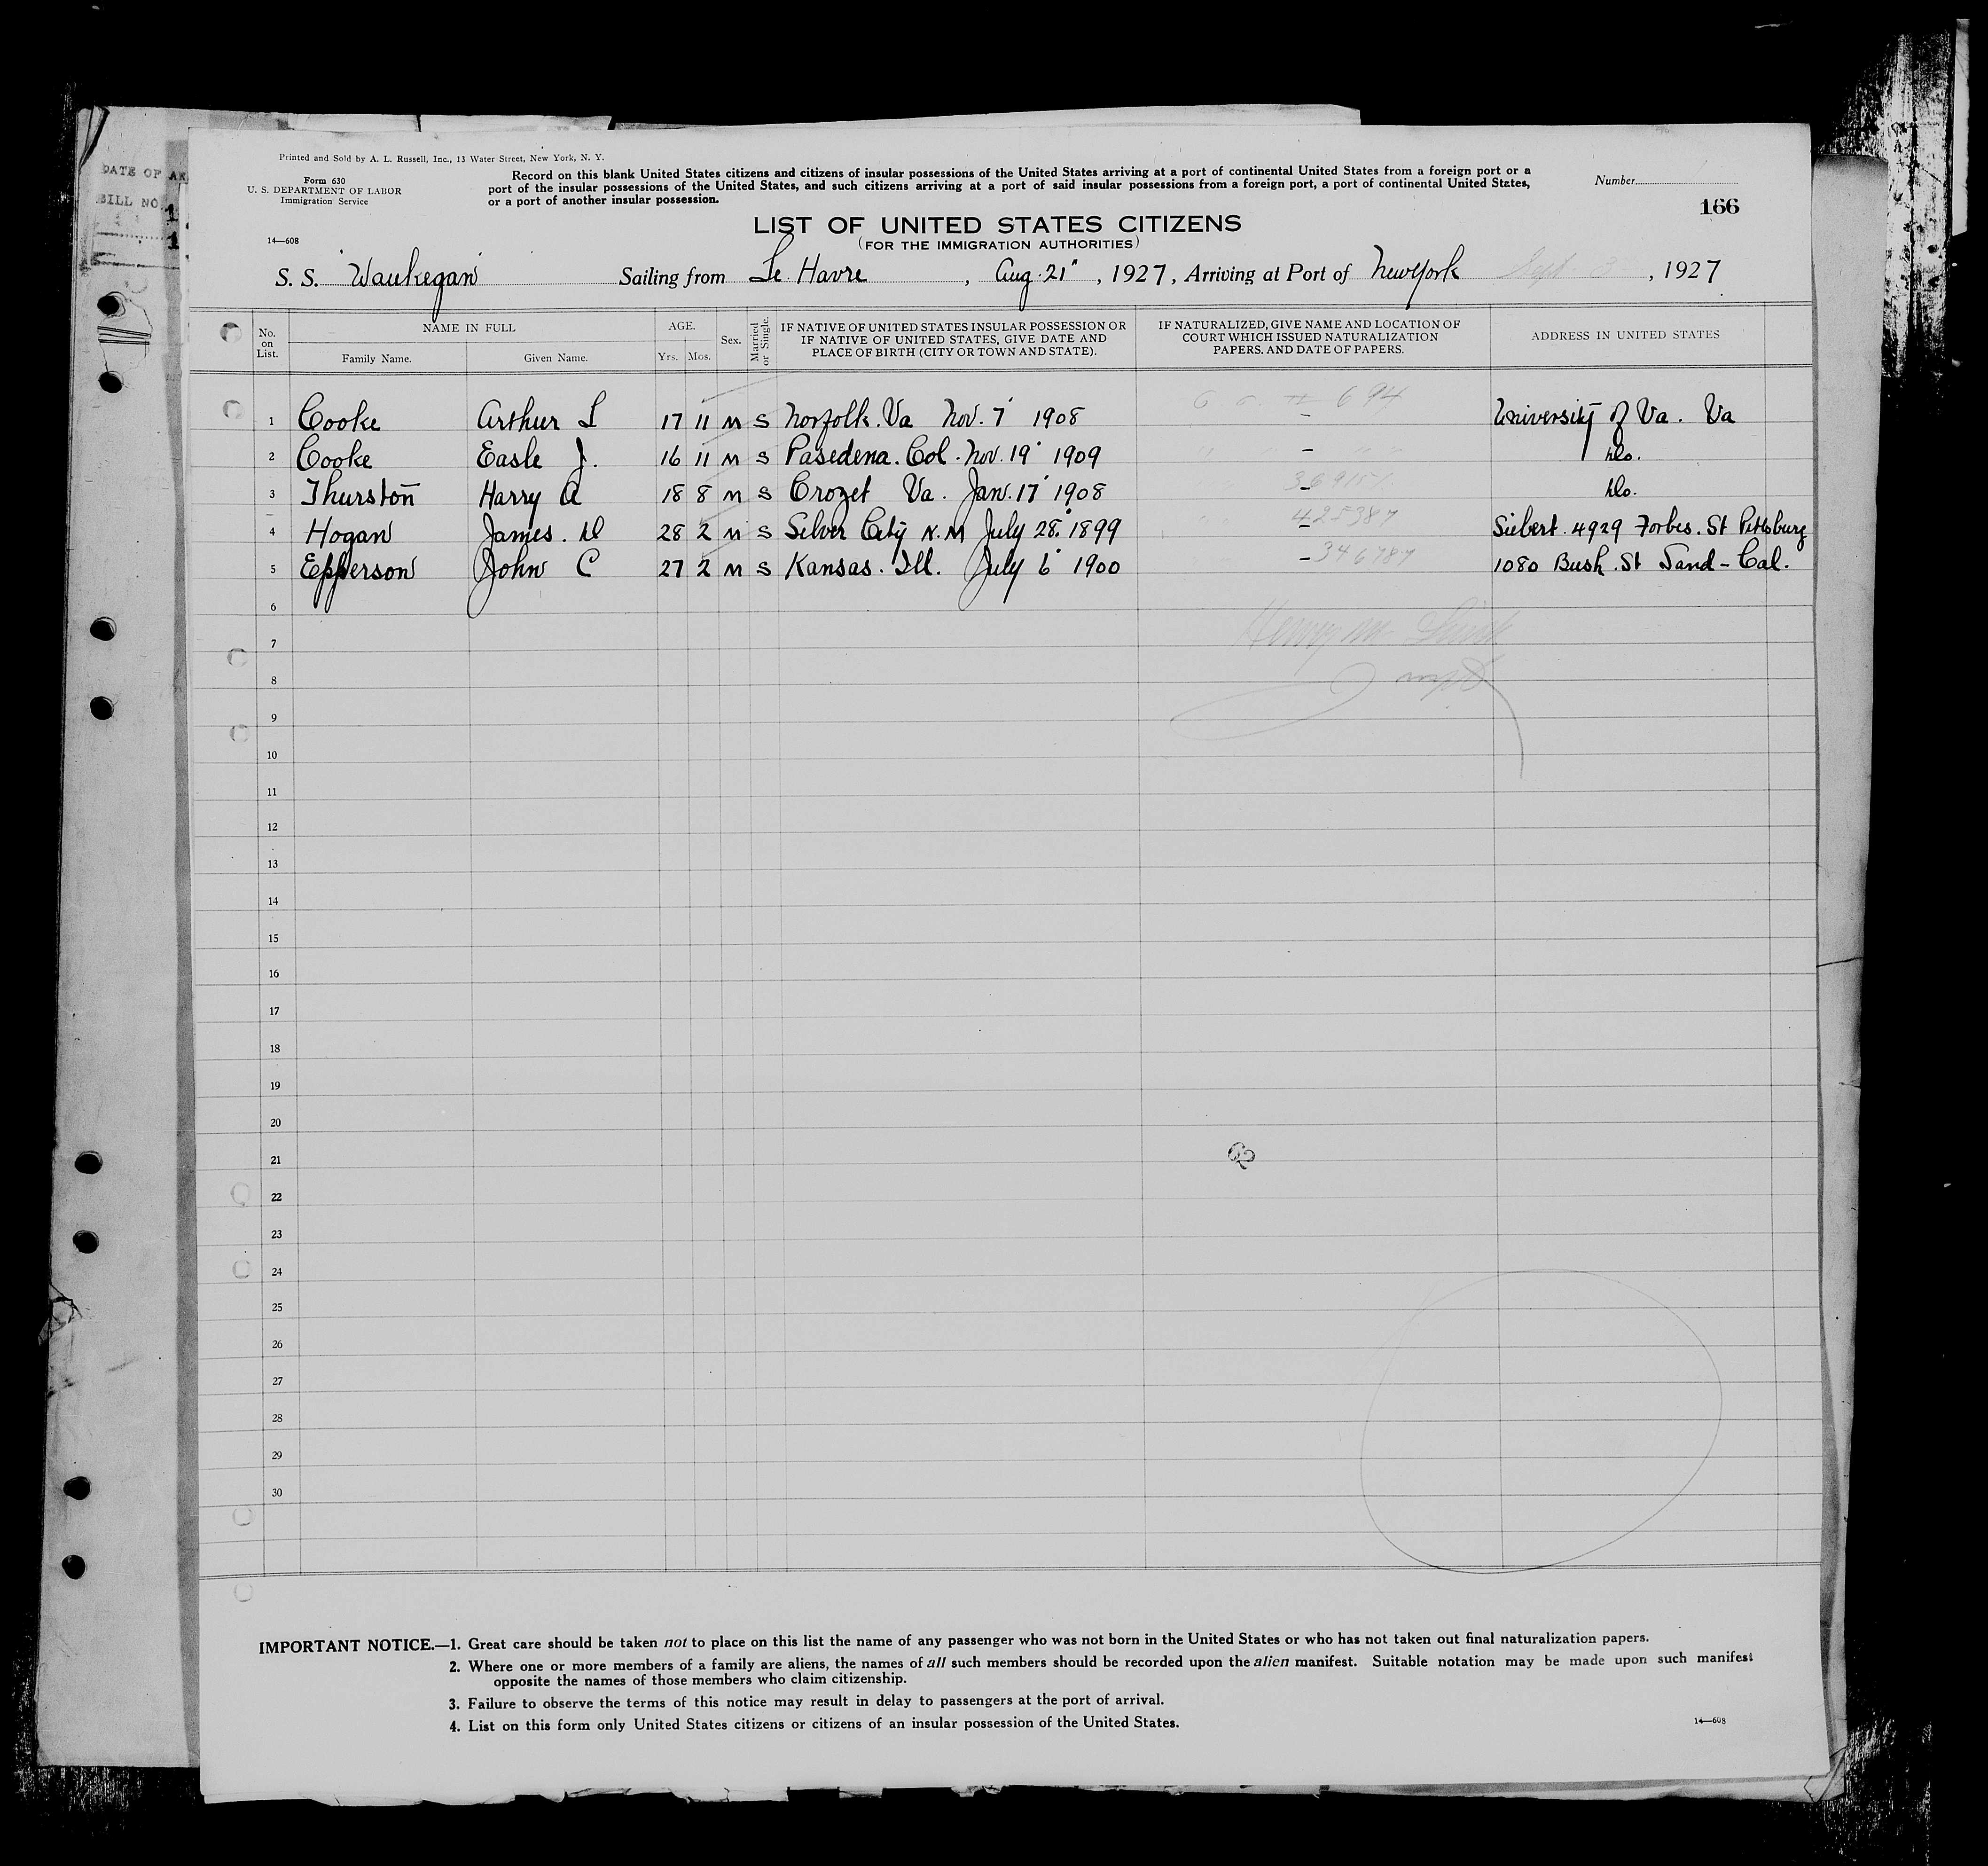 DATE OF AR
BILL NO.
Printed and Sold by A. L. Russell, Inc., 13 Water Street, New York, N. Y.
Form 630
U. S. DEPARTMENT OF LABOR
Immigration Service
14—608
Record on this blank United States citizens and citizens of insular possessions of the United States arriving at a port of continental United States from a foreign port or a
port of the insular possessions of the United States, and such citizens arriving at a port of said insular possessions from a foreign port, a port of continental United States,
or a port of another insular possession.
Number
166
LIST OF UNITED STATES CITIZENS
(FOR THE IMMIGRATION AUTHORITIES)
S. S. "Waukegan" Sailing from Le Havre, Aug. 21", 1927, Arriving at Port of New York Sept. 3, 1927
No. on List. NAME IN FULL AGE. Sex. Married or Single. IF NATIVE OF UNITED STATES INSULAR POSSESSION OR IF NATIVE OF UNITED STATES, GIVE DATE AND PLACE OF BIRTH (CITY OR TOWN AND STATE). IF NATURALIZED, GIVE NAME AND LOCATION OF COURT WHICH ISSUED NATURALIZATION PAPERS, AND DATE OF PAPERS. ADDRESS IN UNITED STATES
Family Name. Given Name. Yrs. Mos.
1 Cooke Arthur L 17 11 M S Norfolk. Va Nov. 7 1908 694 – University of Va. Va
2 Cooke Easle J. 16 11 M S Pasedena. Col. Nov. 19 1909 – Do.
3 Thurston Harry A 18 8 M S Crozet Va. Jan. 17 1908 – Do.
4 Hogan James. D 28 2 M S Silver City N.M July 28. 1899 425387 – Siebert. 4929 Forbes. St Pittsburg
5 Epperson John C 27 2 M S Kansas. Ill. July 6 1900 – 346787 1080 Bush. St Sand – Cal.
6
7 Henry M
8
9
10
11
12
13
14
15
16
17
18
19
20
21
22
23
24
25
26
27
28
29
30
IMPORTANT NOTICE.—1. Great care should be taken not to place on this list the name of any passenger who was not born in the United States or who has not taken out final naturalization papers.
2. Where one or more members of a family are aliens, the names of all such members should be recorded upon the alien manifest. Suitable notation may be made upon such manifest
opposite the names of those members who claim citizenship.
3. Failure to observe the terms of this notice may result in delay to passengers at the port of arrival.
4. List on this form only United States citizens or citizens of an insular possession of the United States.
14—608